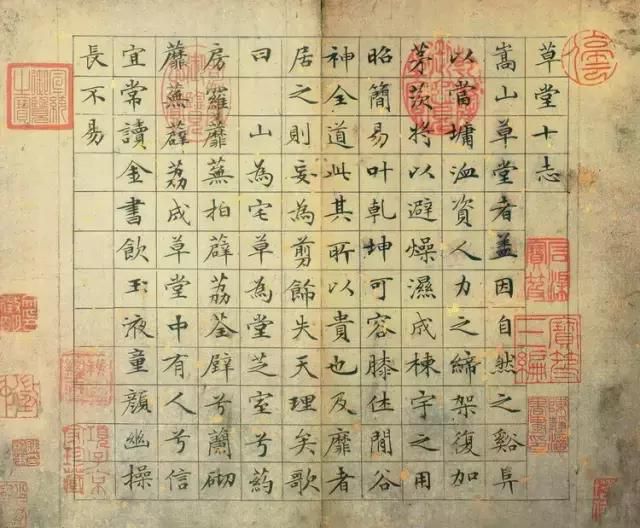 草堂十志
嵩山草堂者蓋因自然之谿阜
以當墉洫資人力之締架復加
茅茨將以避燥濕成棟宇之用
昭簡易叶乾坤可容膝休閒谷
神全道此其所以貴也及靡者
居之則妄為剪飾失天理矣歌
曰 山為宅草為堂芝室兮葯
房羅蘼蕪拍薜荔荃壁兮蘭砌
蘼蕪薜荔成草堂中有人兮信
宜常讀金書飲玉液童顏幽操
長不易
宣統御覽之寶
項子京家珍藏